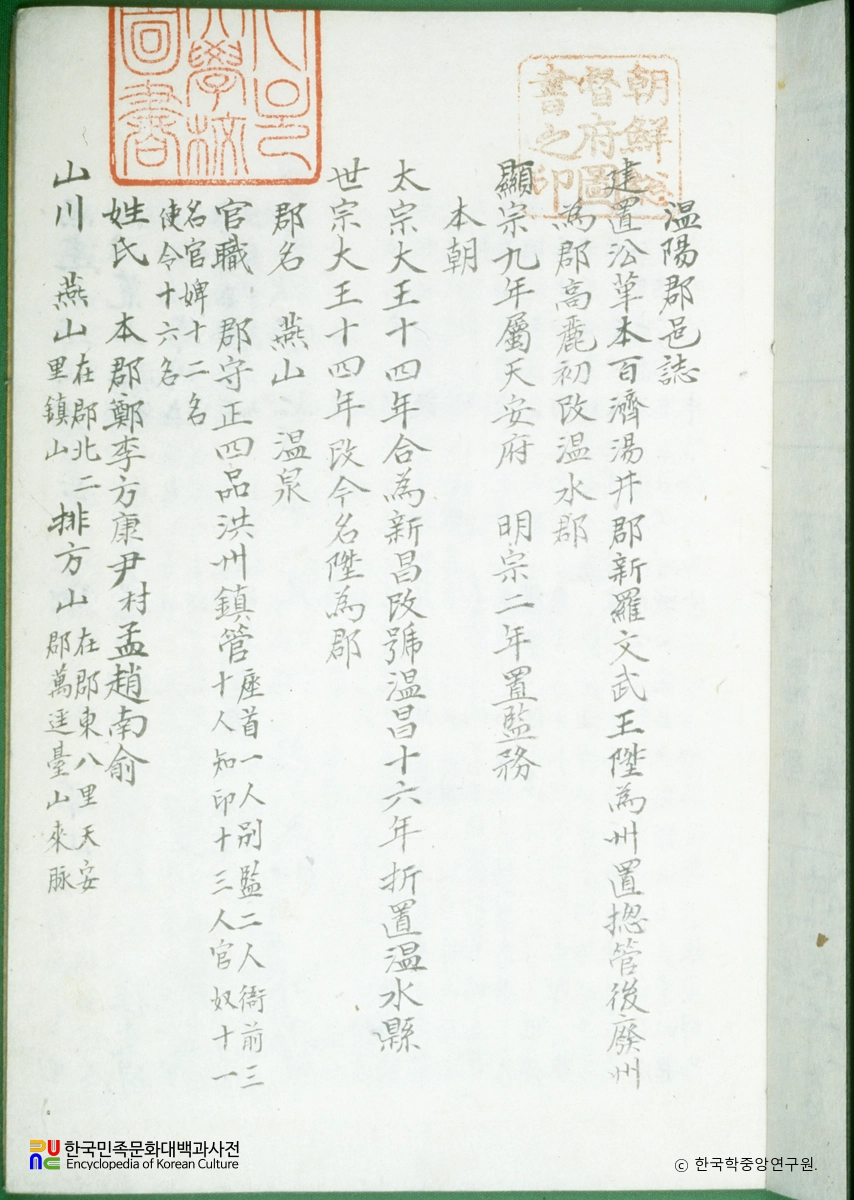 溫陽郡邑誌
建置沿革本百濟湯井郡新羅文武王陞為州置摠管後廢州
為郡高麗初改溫水郡
顯宗九年屬天安府 明宗二年置監務
本朝
太宗大王十四年合為新昌改號溫昌十六年折置溫水縣
世宗大王十四年改今名陞為郡
郡名 燕山 溫泉
官職 郡守正四品洪州鎮管座首一人別監二人衙前三
十人知印十三人官奴十一
名官婢十二名
使令十六名
姓氏 本郡鄭李方康尹村孟趙南俞
山川 燕山在郡北二
里鎮山 排方山在郡東八里天安
郡萬逕臺山來脉
朝鮮總
督府圖
書之印
學校
圖書
한국민족문화대백과사전
Encyclopedia of Korean Culture
ⓒ 한국학중앙연구원.